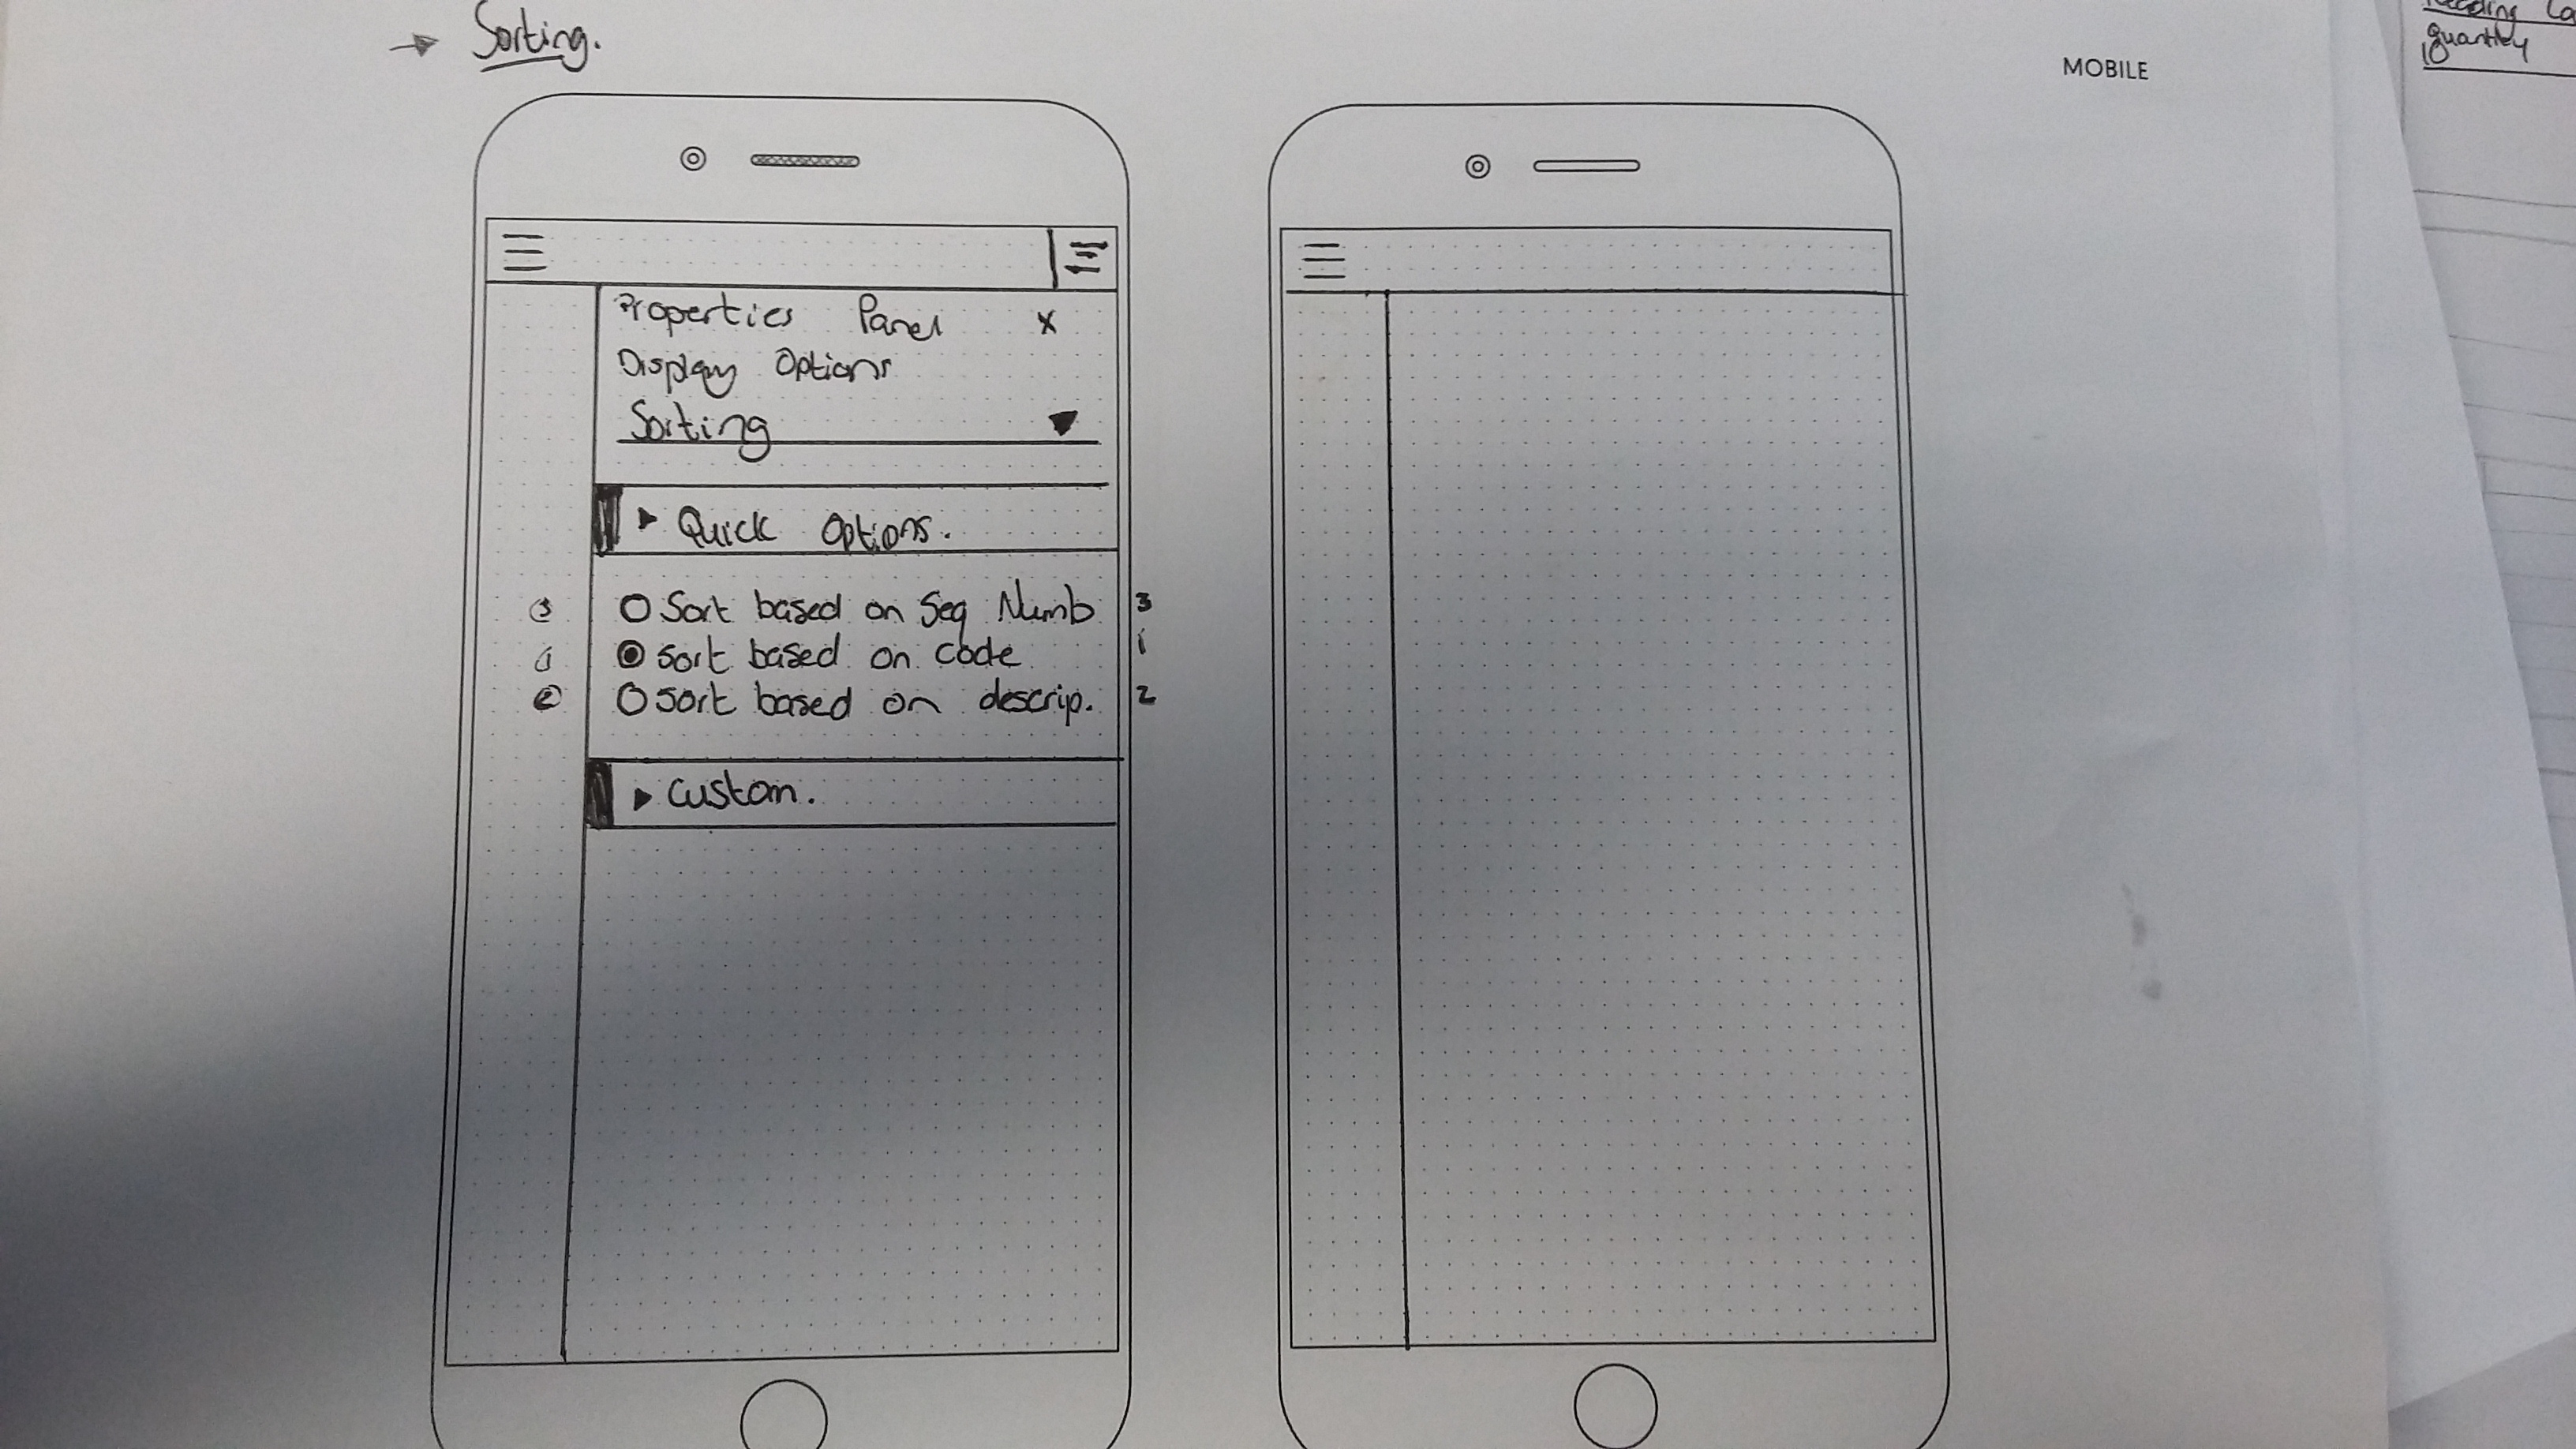 → Sorting.
MOBILE
Properties Panel x
Display Options
Sorting
Quick Options.
3 Sort based on Seq Numb 3
1 Sort based on code 1
2 Sort based on descrip. 2
Custom.
quantity